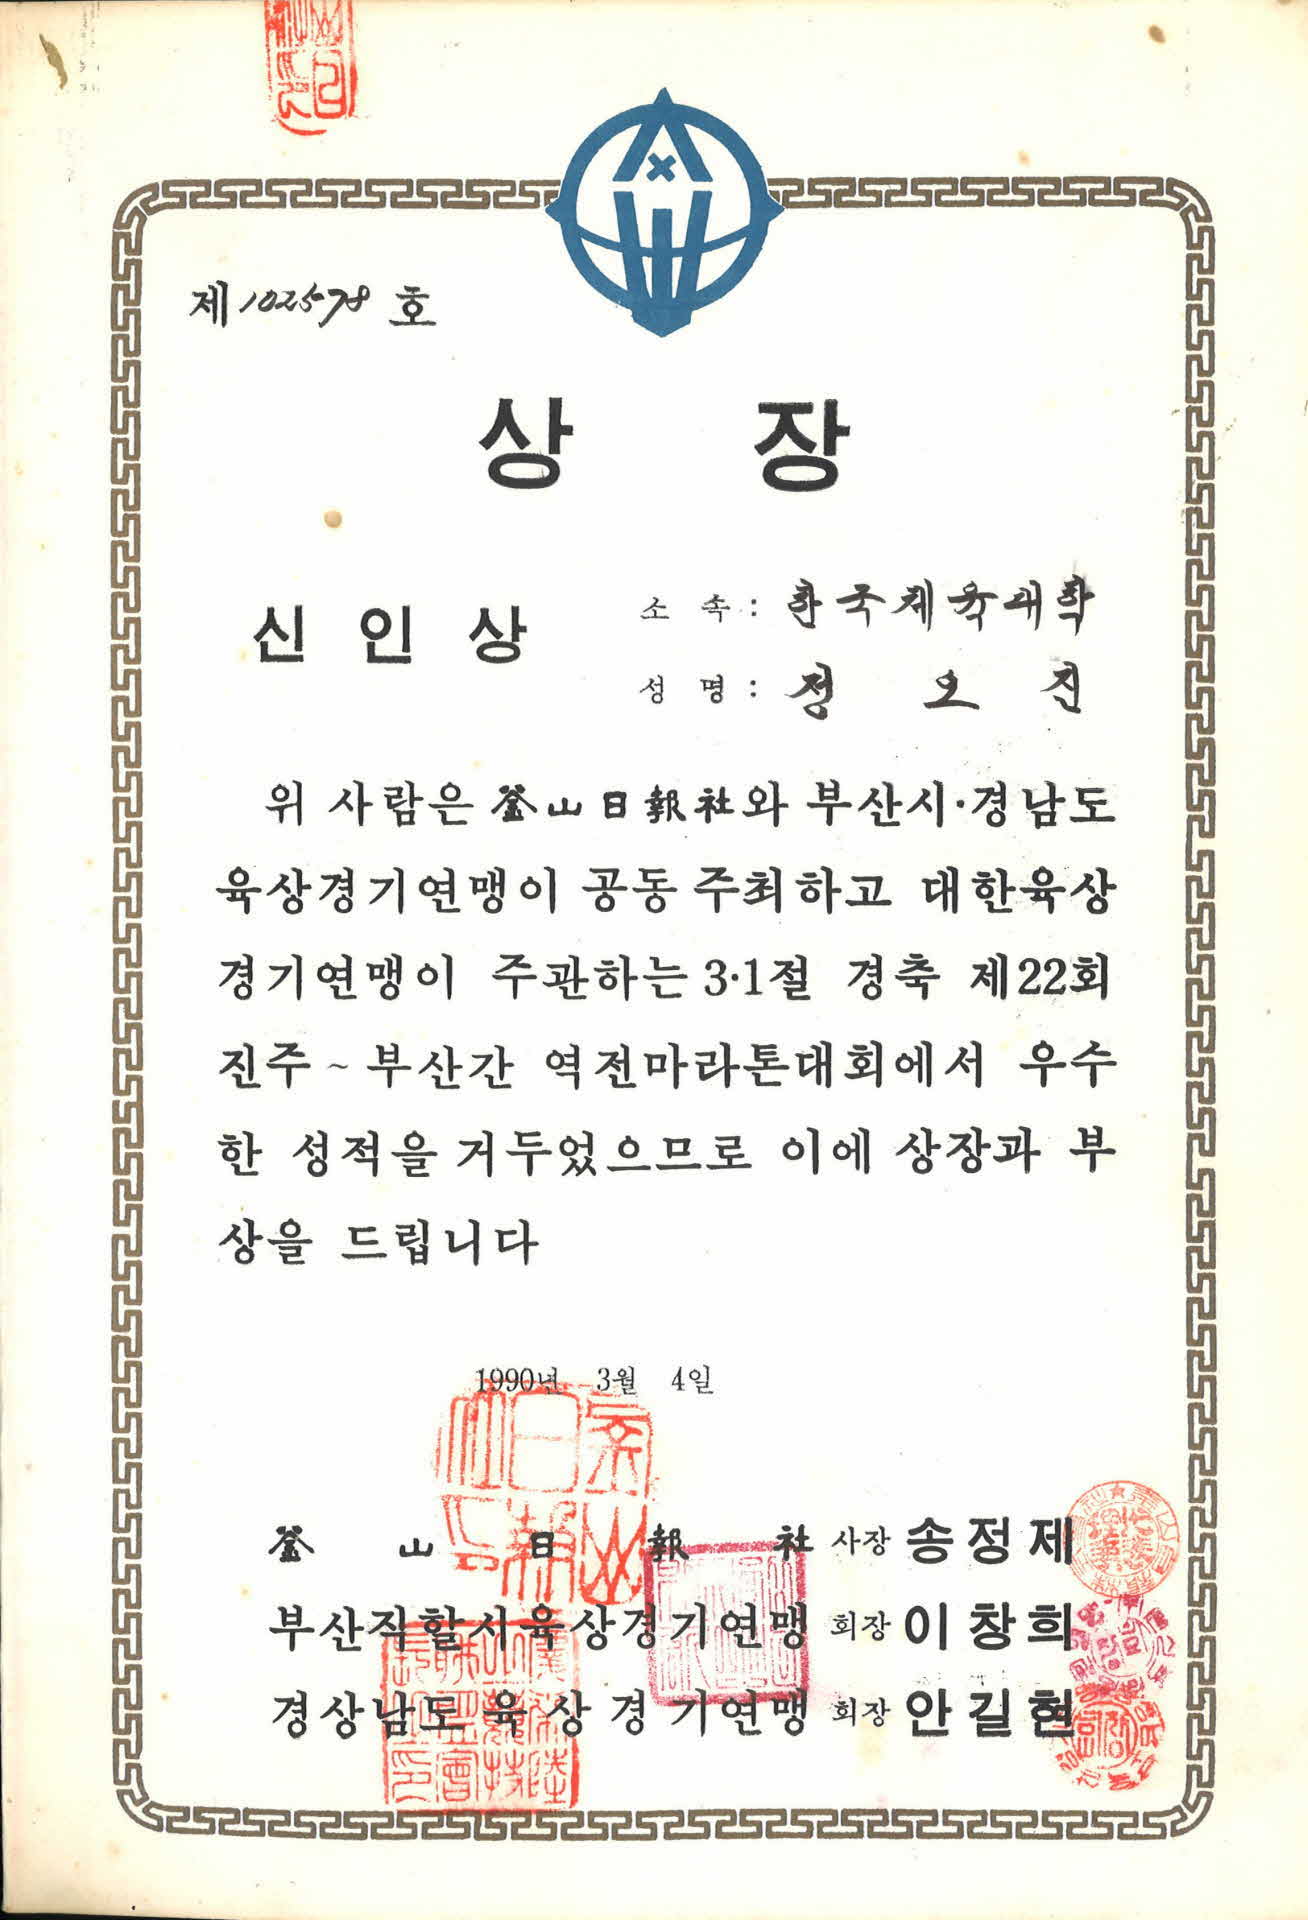 제 102578 호
상 장
신 인 상
소 속 : 한국체육대학
성 명 : 정 오 진
위 사람은 釜山日報社와 부산시·경남도
육상경기연맹이 공동 주최하고 대한육상
경기연맹이 주관하는 3·1절 경축 제22회
진주 ~ 부산간 역전마라톤대회에서 우수
한 성적을 거두었으므로 이에 상장과 부
상을 드립니다
1990년 3월 4일
釜山日報社 사장 송정제
부산직할시육상경기연맹 회장 이창희
경상남도육상경기연맹 회장 안길현